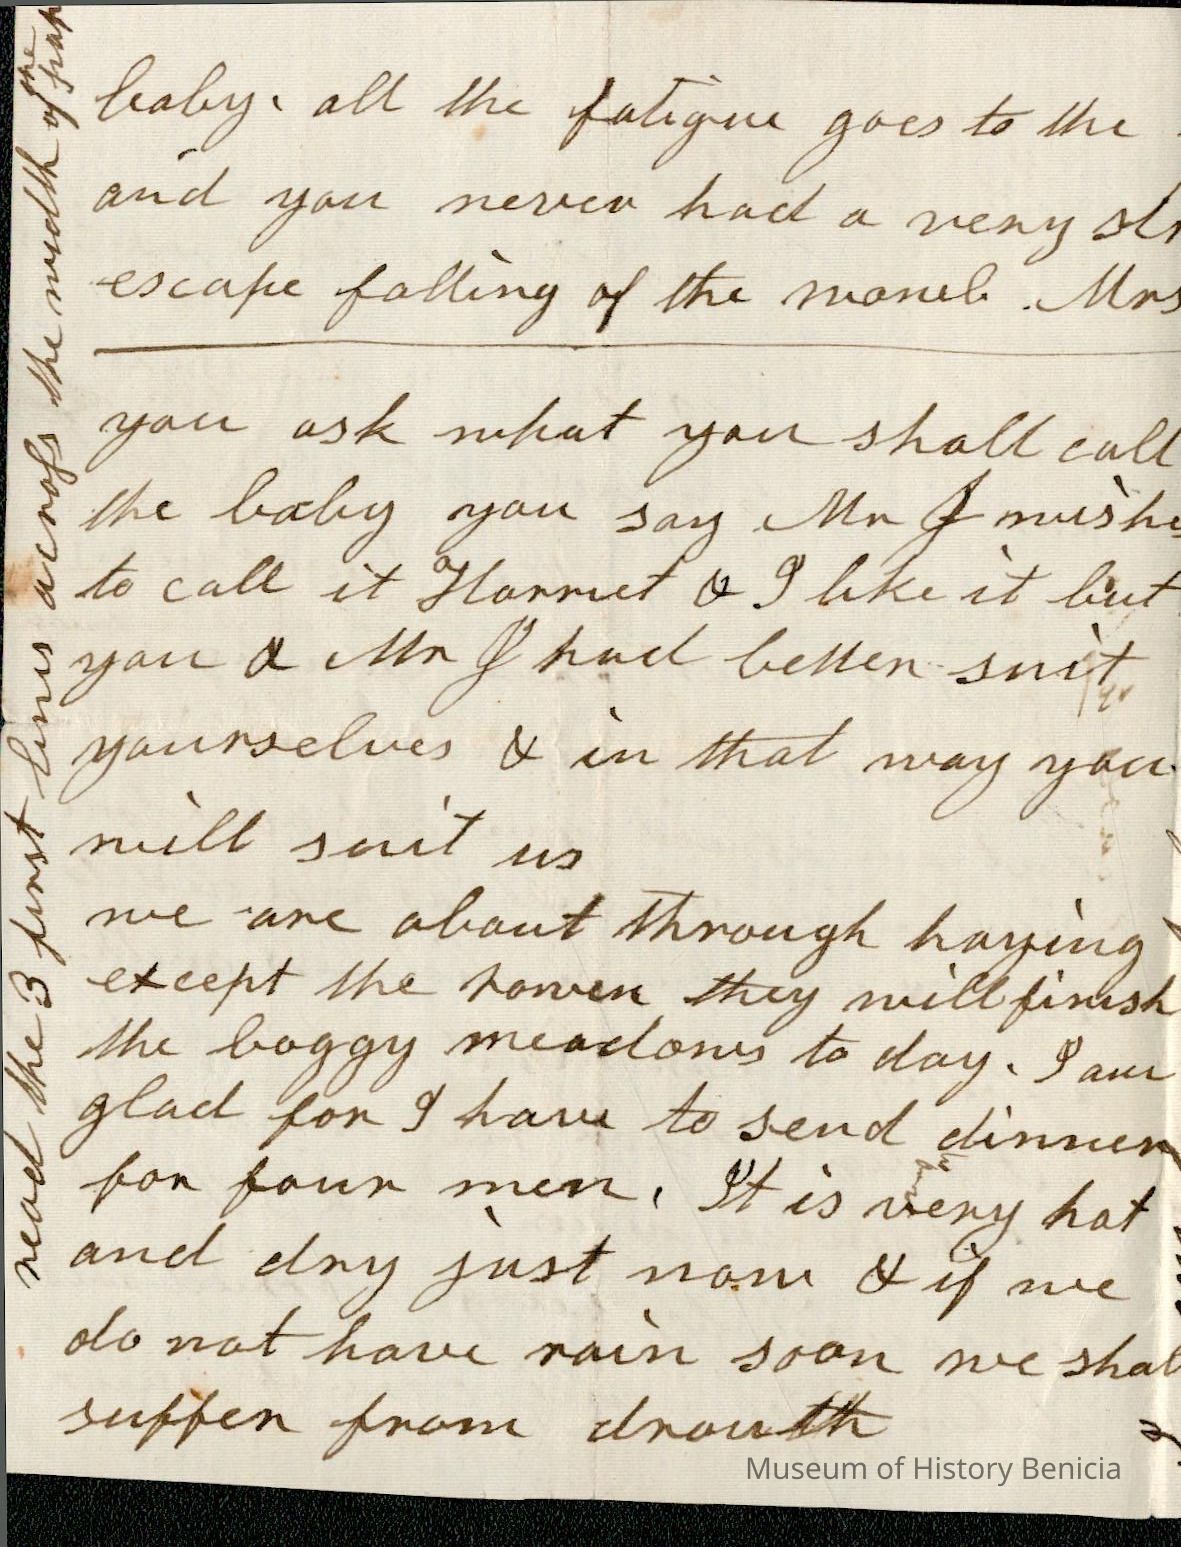 baby. all the fatigue goes to the
and you never had a very
escape falling of the womb. Mrs
you ask what you shall call
the baby you say Mr J wishe
to call it Harriet & I like it but
you & Mr J had better suit
yourselves & in that way you
will suit us
we are about through haying
except the rowen they will finish
the boggy meadows to day. I am
glad for I have to send dinner
for four men. It is very hot
and dry just now & if we
do not have rain soon we shal
suffer from drouth
read the 3 first lines across the width of the pap
Museum of History Benicia